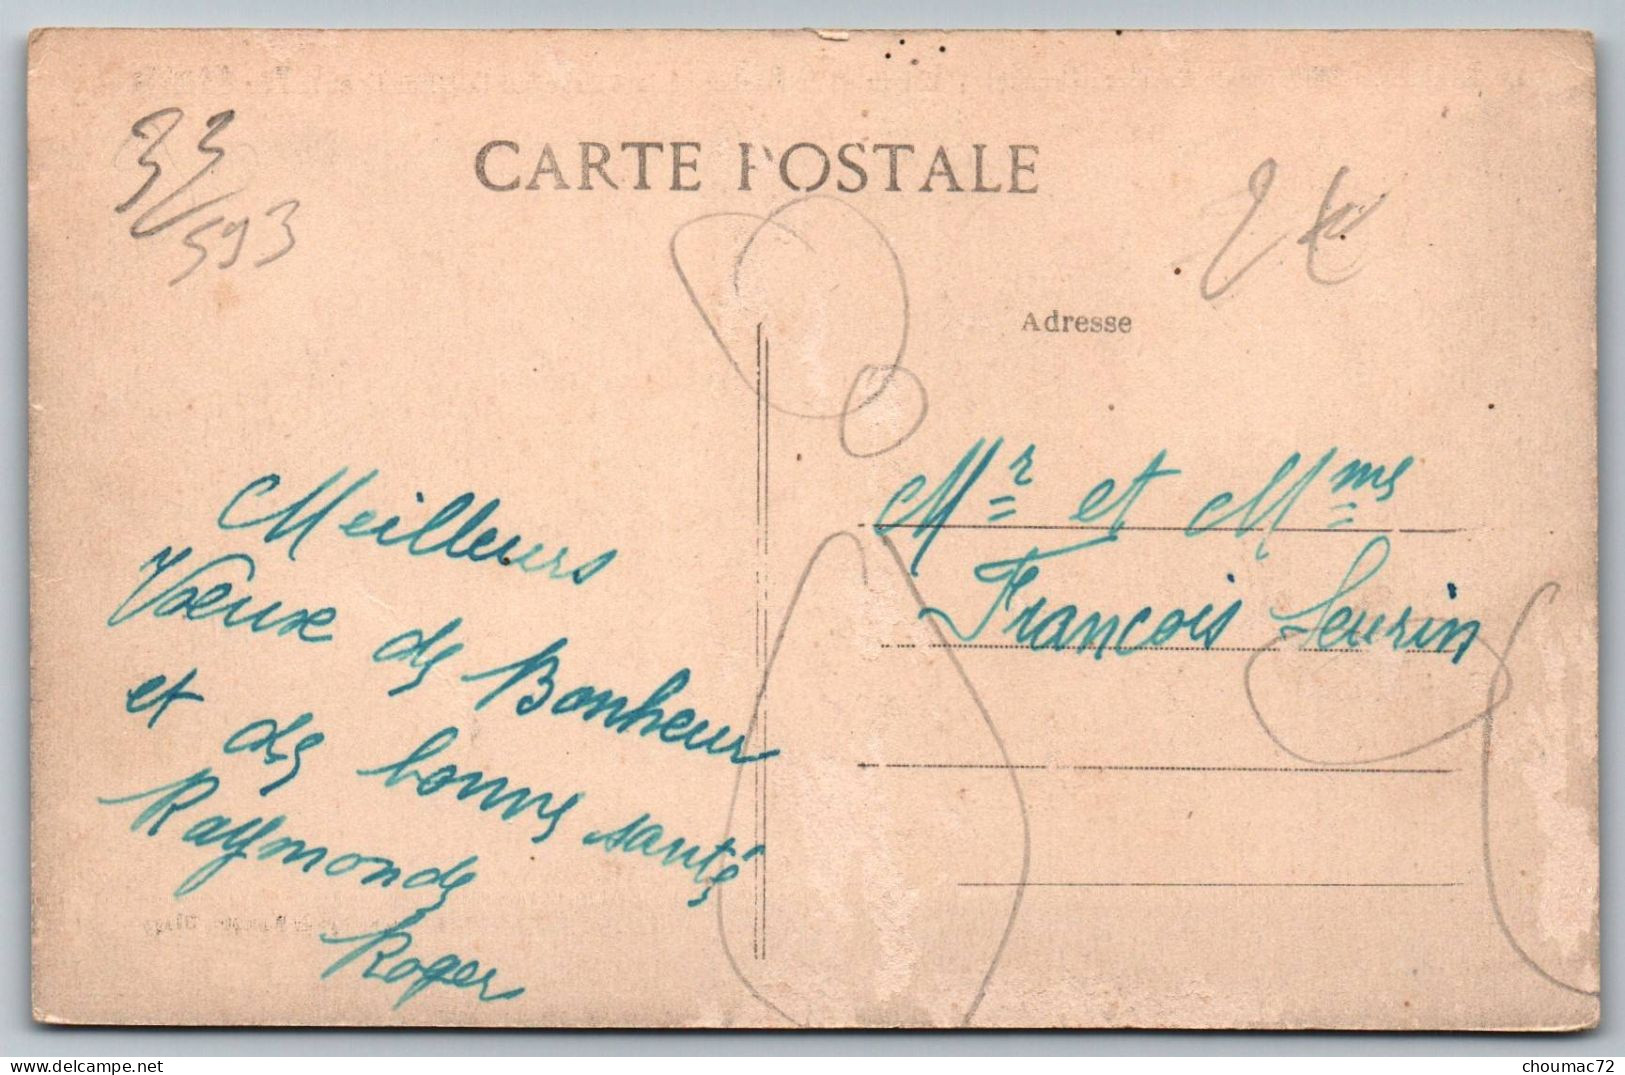 33
593
CARTE POSTALE
2€
Adresse
Meilleurs
Voeux de Bonheur
et de bonne santé
Raymonde
Roger
Mr et Mme
François Seurin
choumac72